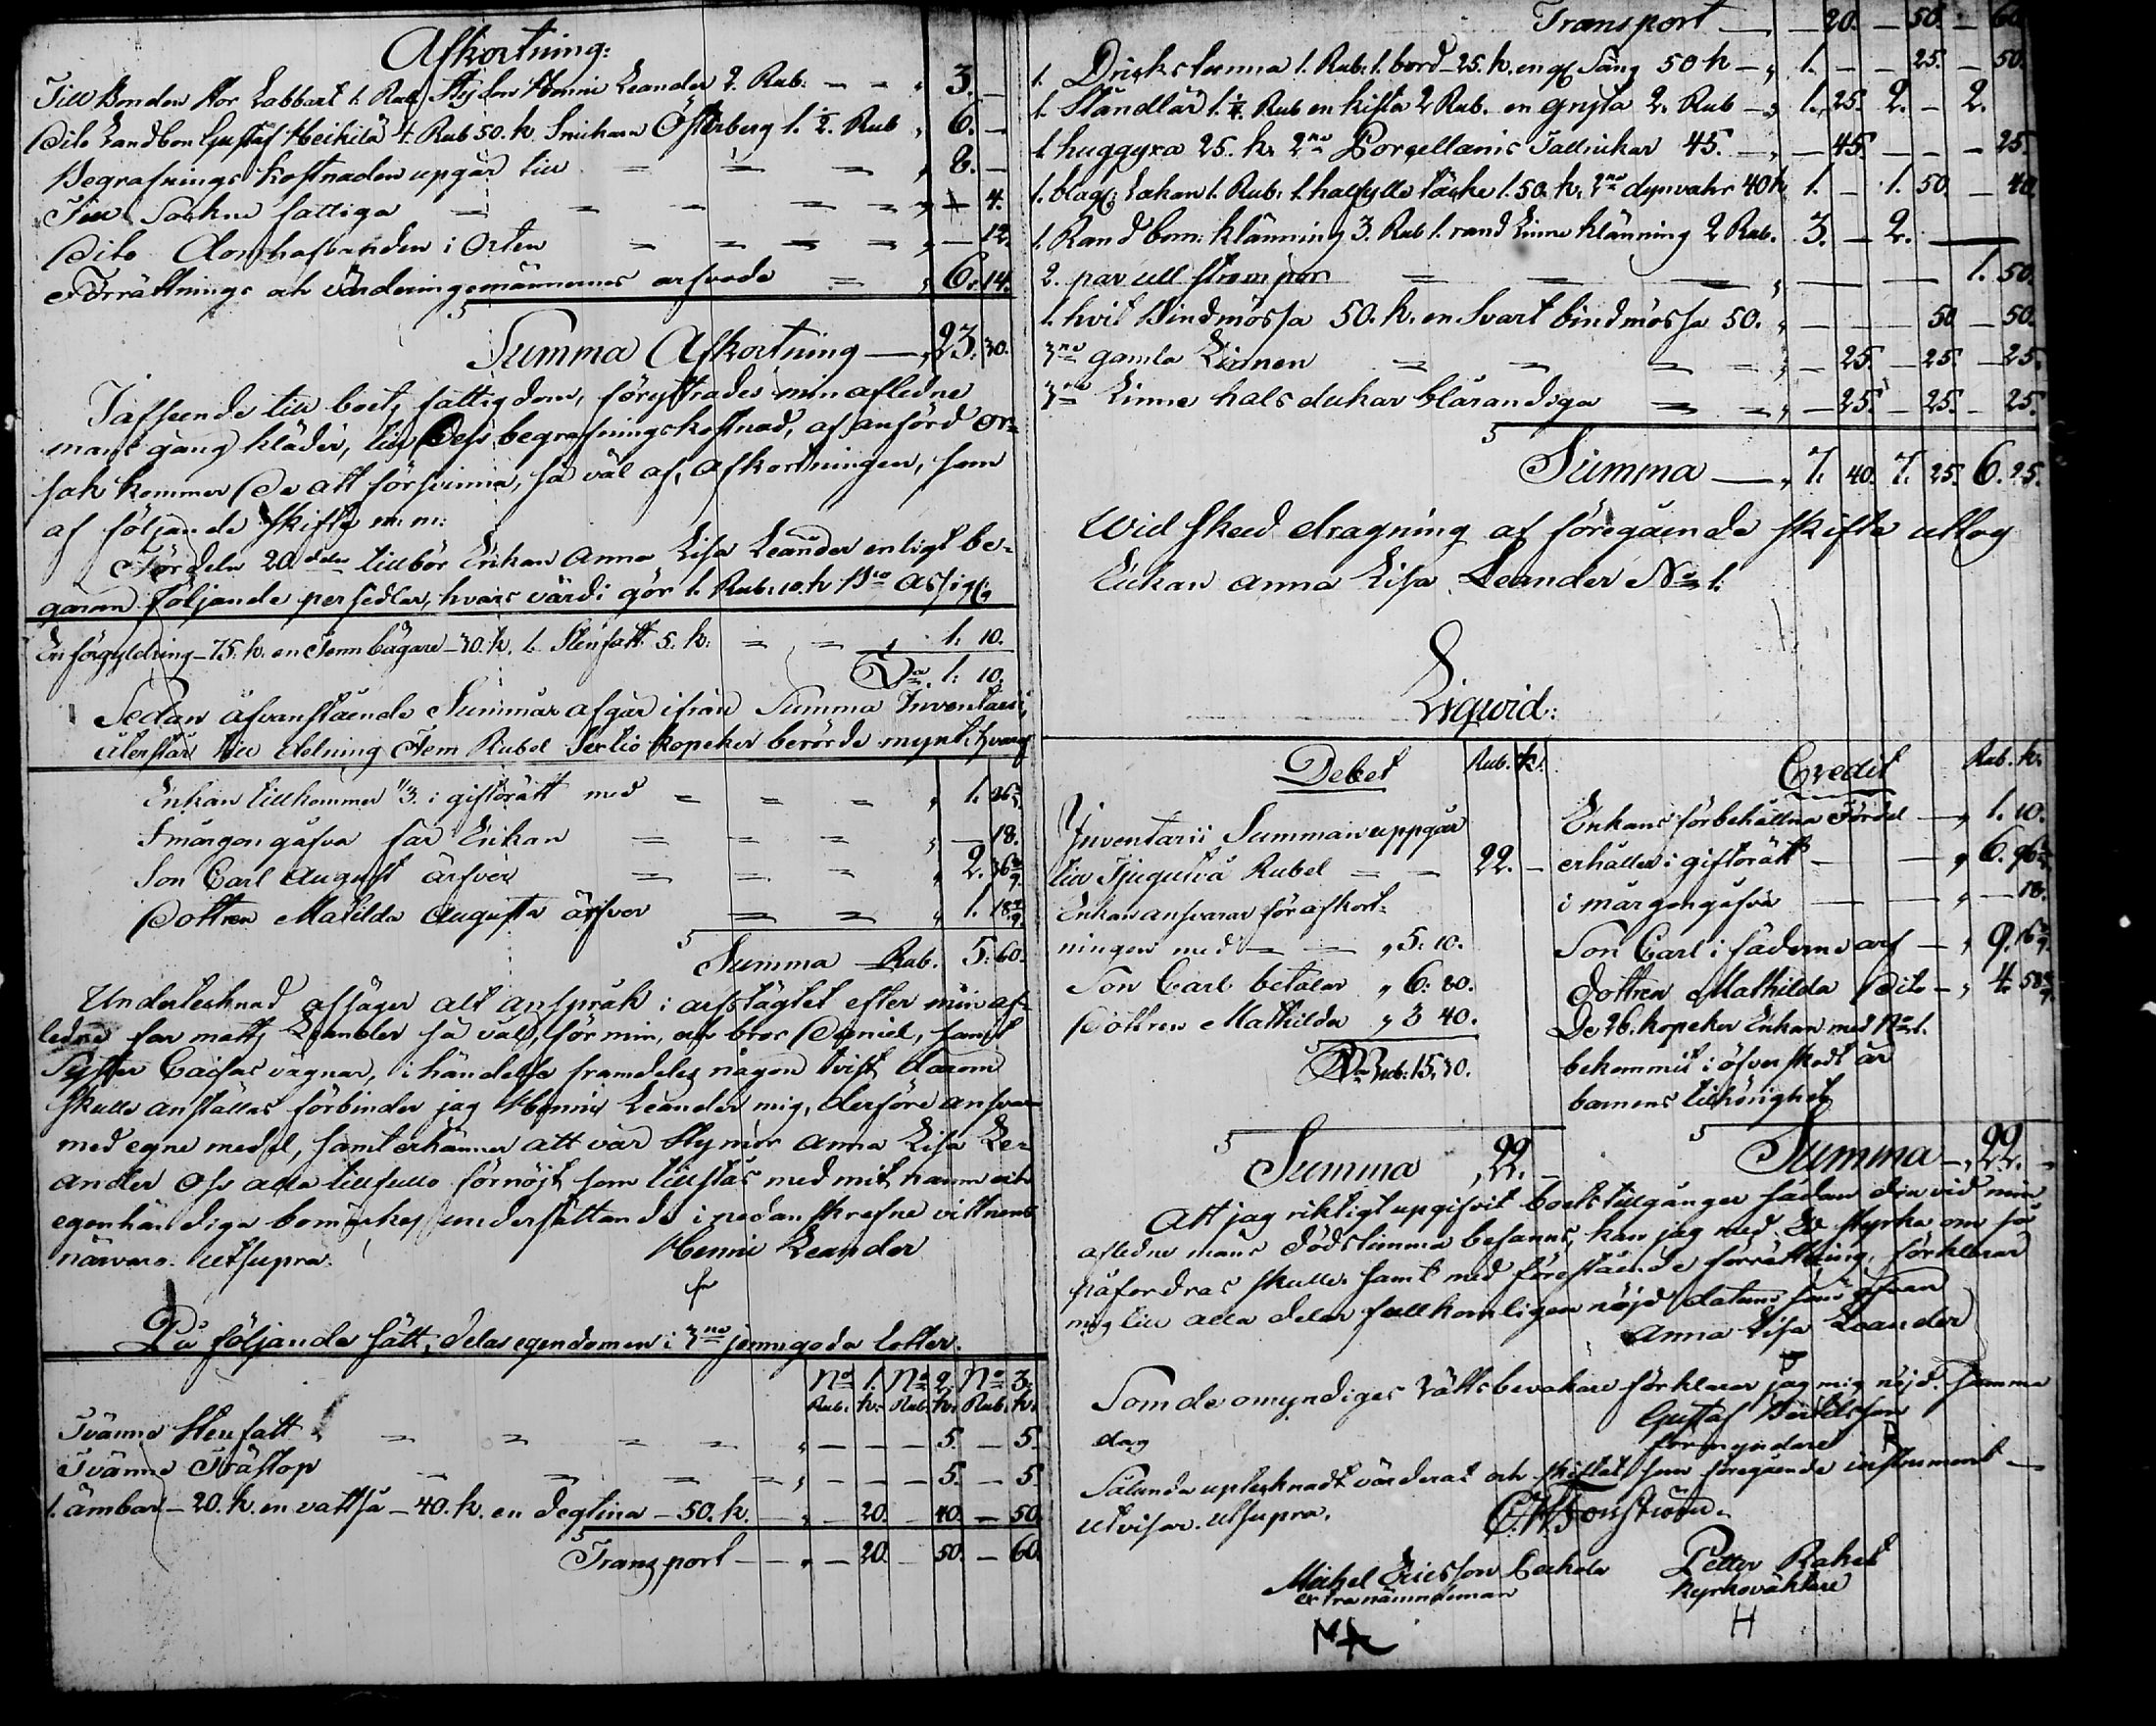 Afkortning:
Till Bonden Kor Labbart 1. Rub. Styfson Henric Leander 2. Rub. — — „ 3. —
Dito Landbon Gustaf Heikilä 4. Rub 50. k. Smeharn Österberg 1. ½. Rub „ 6. —
Begrafnings Kostnaden upgår till = = = „ 8. —
Till Sockne fattiga = = = = = „ — 4.
Dito Domhafvanden i Orten = = = = = „ — 12.
Förrättnings och Värderingsmännernes arfvode = „ 6. 14.
Summa Afkortning — „ 23. 30.
I afseende till boets fattigdom, föryttrades min afledne
mans gång kläder, till Dess begrafningskostnad, af anförd or-
sak kommer De att försvinna, så väl af, Afkortningen, som
af följande skifte m: m:
Fördeln 20.de deln tillhör Enkan Anna Lisa Leander enligt be-
garan följande persedlar, hvars värde gör 1. Rub: 10. k B:co Assig:
En förgyldring — 75. k. en Tenn bägare — 30. k. 1. Stenfatt 5. k: = = „ 1. 10.
S:a 1: 10.
Sedan åfvanstående Summar afgår ifrån Summa Inventarii,
återstår till delning Fem Rubel Sextio kopeker berörde mynt, hvaraf
Enkan tillkommer 1/3. i giftorätt med = = = „ 1.
I morgongåfva får Enkan = = = „ — 18.
Son Carl August ärfver = = = „ 2.
Dottren Matilda Augusta ärfver = = „ 1.
Summa Rub. 5: 60.
Undertecknad afsäger alt anspråk i arfslägtet efter min af-
ledne far Matts Leander så väl, för min, och bror Daniel, samt
Syster Caisas vägnar, i händelse framdeles någon tvist Därom
skulle anställas förbinder jag Henric Leander mig, derföre ansvara
med egne medel, samt erkänner att vår Stymor Anna Lisa Le-
ander Oss alla tillfullo förnöjt som tillstås med mit namn och
egenhändiga bomärkes undersättande i nedanskrefne vittnens
närvaro. Utsupra.
Henric Leander
På följande sätt, delas egendomen i 3:ne jemngoda lotter.
N:o 1. N:o 2. N:o 3:
Rub. k: Rub. k: Rub. k:
Tvänne Stenfatt = = = = „ — — — 5. — 5.
Tvänne Trästop = = = = „ — — — 5. — 5.
1. ämbar — 20. k. en vattså — 40. k. en degtina — 50. k. — „ — 20. — 40. — 50.
Transport — — „ — 20. — 50. — 60.
Transport — — 20. — 50. — 60.
1. Dricks tunna 1. Rub: 1. bord — 25. k. en g: Säng 50 k — „ 1. — — 25. — 50.
1. Ståndlår 1. ¼. Rub en kista 2 Rub. en gryta 2. Rub — „ 1. 25. 2. — 2.
1. huggyxa 25. k: 2:ne Porcellanis Tallrickar 45. — „ — 45. — — — 25.
1. blag: Lakan 1. Rub: 1. halfylle täcke 1. 50. k: 2:ne dynvahr 40 k. 1. — 1. 50 — 40.
1. Rand bom: klänning 3. Rub 1. rand Linne klänning 2 Rub. 3. — 2. —
2. par ull strumpor = = = „ — — 1. 50.
1. hvit Bindmössa 50. k. en Svart bindmössa 50. „ — — — 50 — 50.
3:ne gamla Linnen = = = = „ — 25. — 25. — 25.
3:ne Linne hals dukar blårandiga = = „ — 25. — 25. — 25.
Summa — „ 7. 40. 7. 25. 6. 25.
Wid skedd dragning af föregående skifte uttog
Enkan Anna Lisa Leander N:o 1.
Liqvid:
Debet Rub. k:
Inventarii Summan uppgår
till Tjugutvå Rubel — — 22. —
Enkan ansvarar för afkort-
ningen med — — „ 5: 10.
Son Carl betalar „ 6: 80.
Dottren Mathilda „ 3 40.
S:a Rub: 15: 30.
Summa „ 22. —
Credit Rub. k:
Enkans förbehållna Fördel — „ 1. 10.
erhåller i giftorätt — — „ 6.
i morgongåfva — — „ — 18.
Son Carl i fäderne arf — „ 9.
Dottren Mathilda Dito — „ 4.
De 26. kopeker Enkan med N:o 1.
bekommit i öfverskott är
barnens tillhörighet
Summa — „ 22. —
Att jag riktigt upgifvit boets tillgångar sådan den vid min
afledne mans dödstimma befanns, kan jag med Ed styrka om så
påfordras skulle. Samt med förestående förrättning, förklarar
mig till alla delar fullkomligen nöjd datum som ofvan
Anna Lisa Leander
Som de omyndiges Rättsbevakare förklarar jag mig nöjd. Samma
dag
Gustaf
förmyndare
Sålunda uptecknadt värderat och skiftat som föregående instrument —
utvisar. Utsupra.
Michel Ericsson
extra nämndeman
Petter Raket
Kyrkoväktare
H